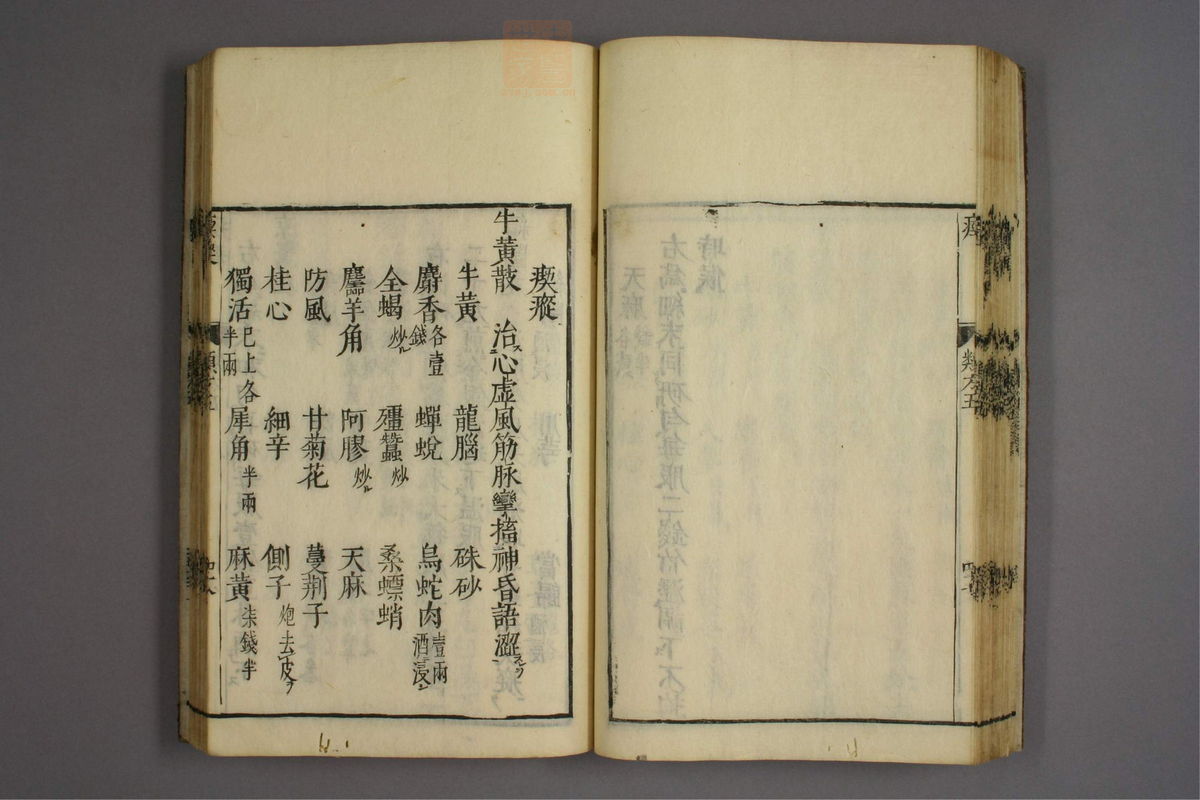 類方五
瘈瘲
牛黄散　治心虚風筋脉攣搐神昏語澀
牛黄　龍腦　硃砂
麝香各壹錢　蟬蛻　烏蛇肉壹兩酒浸
全蝎炒　殭蠶炒　桑螵蛸
羊角　阿膠炒　天麻
防風　甘菊花　蔓荆子
桂心　細辛　側子炮去皮
獨活已上各半兩　犀角半兩　麻黄柒錢半